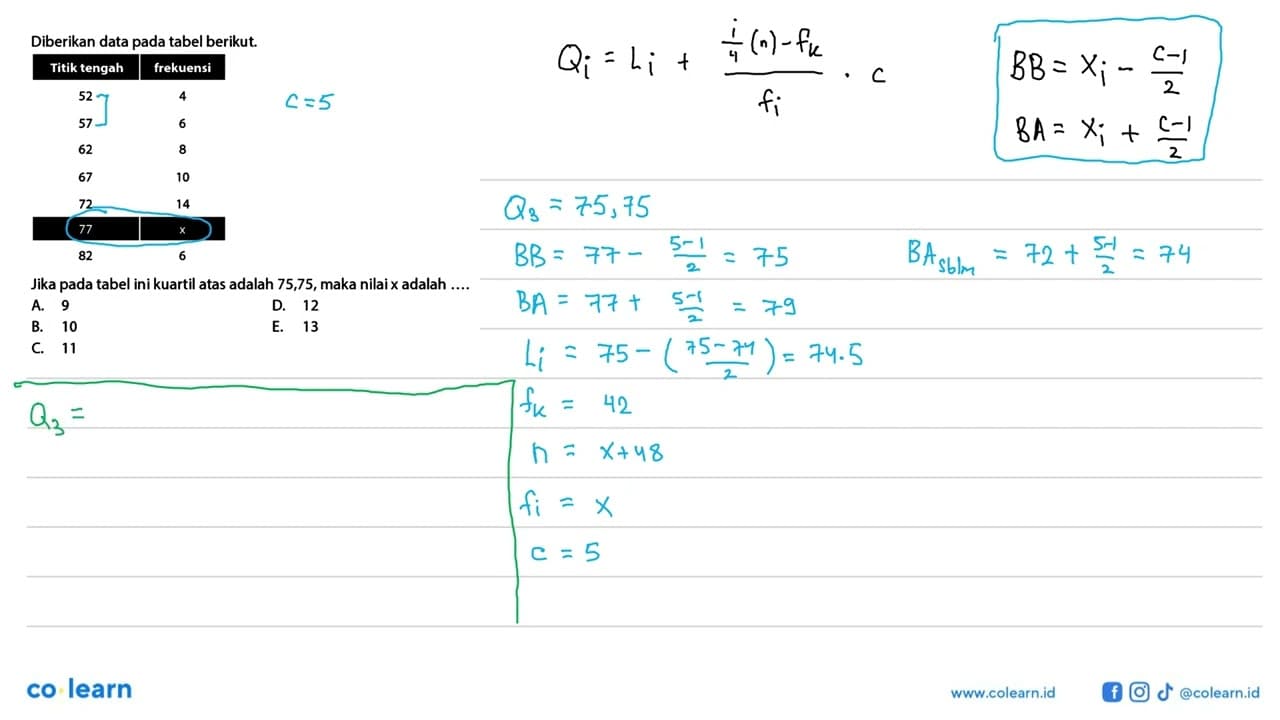 Diberikan data pada tabel berikut.
Titik tengah frekuensi
52 4
57 6
62 8
67 10
72 14
77 x
82 6
c = 5
Jika pada tabel ini kuartil atas adalah 75,75, maka nilai x adalah ....
A. 9 D. 12
B. 10 E. 13
C. 11
Qi = Li + (i/4 (n) - fk)/fi . c
BB = xi - (c-1)/2
BA = xi + (c-1)/2
Q3 = 75,75
BB = 77 - (5-1)/2 = 75 BA sblm = 72 + (5-1)/2 = 74
BA = 77 + (5-1)/2 = 79
Li = 75 - ((75-74)/2) = 74.5
fk = 42
n = x+48
fi = x
c = 5
Q3 =
co learn
www.colearn.id @colearn.id